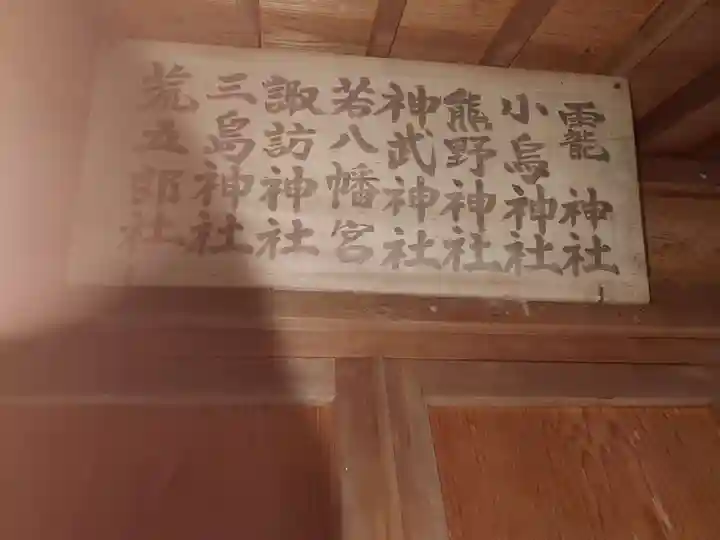 龗神社
小烏神社
熊野神社
神武神社
若八幡宮
諏訪神社
三島神社
荒五郎社